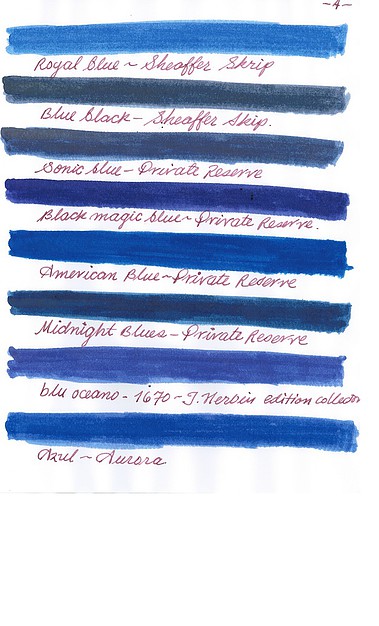 -4-
Royal Blue ~ Sheaffer Skrip
Blue black - Sheaffer Skip.
Sonic blue - Private Reserve
Black magic blue ~ Private Reserve.
American Blue ~ Private Reserve
Midnight Blues - Private Reserve
blu oceano - 1670 - J. Herbin edition collection
Azul ~ Aurora